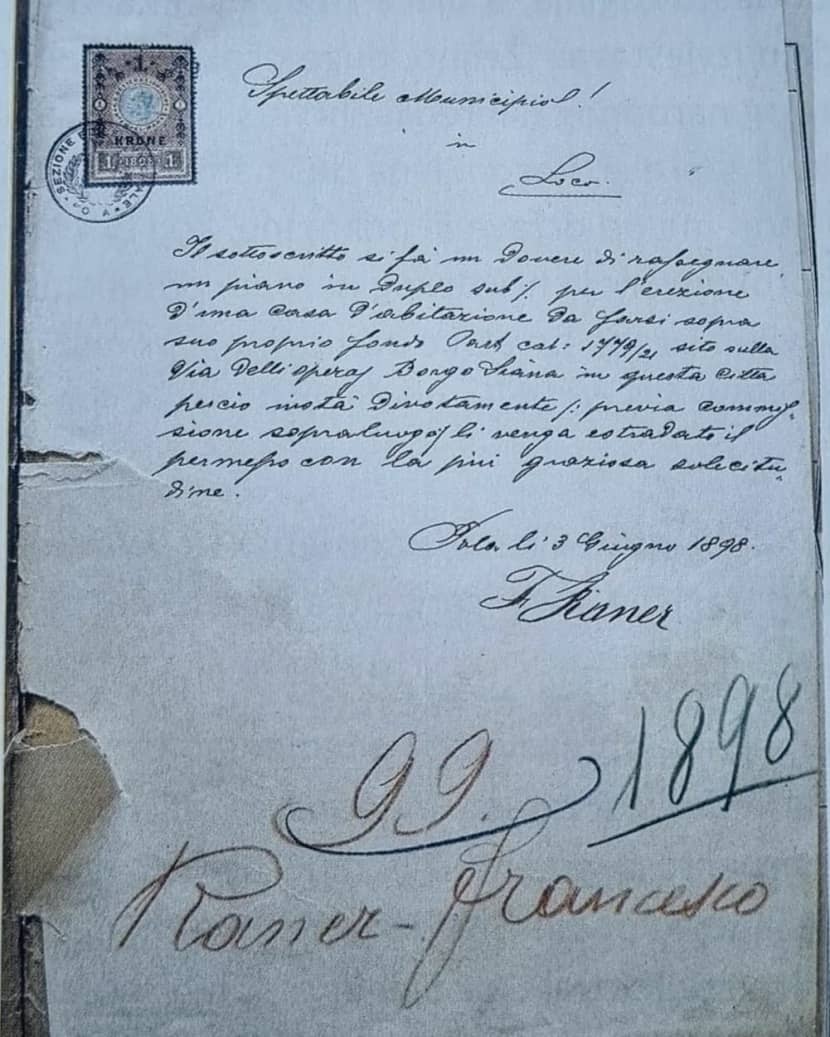 1
KRONE
1 1898 1
SEZIONE
POLA
Spettabile Municipio!
in
Loco.
Il sottoscritto si fà un Dovere di rassegnare
un piano in Duplo sub ·/. per l'erezione
D'una casa D'abitazione Da farsi sopra
suo proprio fondo Part. cat: 1779/21 sito sulla
Via Delli operaj Borgo Siana in questa Città
perciò instà Divotamente /: previa commis„
sione sopraluogo :/ li venga estradato il
permesso con la più graziosa solecitu„
dine.
Pola li 3 Giugno 1898.
F. Raner
99. 1898
Raner - Francesco